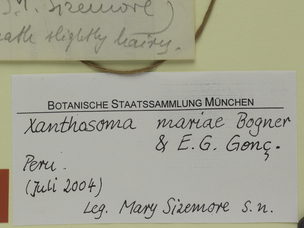 M. Sizemore)
slightly hairy.
BOTANISCHE STAATSSAMMLUNG MÜNCHEN
Xanthosoma mariae Bogner
& E.G. Gonç.
Peru.
(Juli 2004)
Leg. Mary Sizemore s.n.